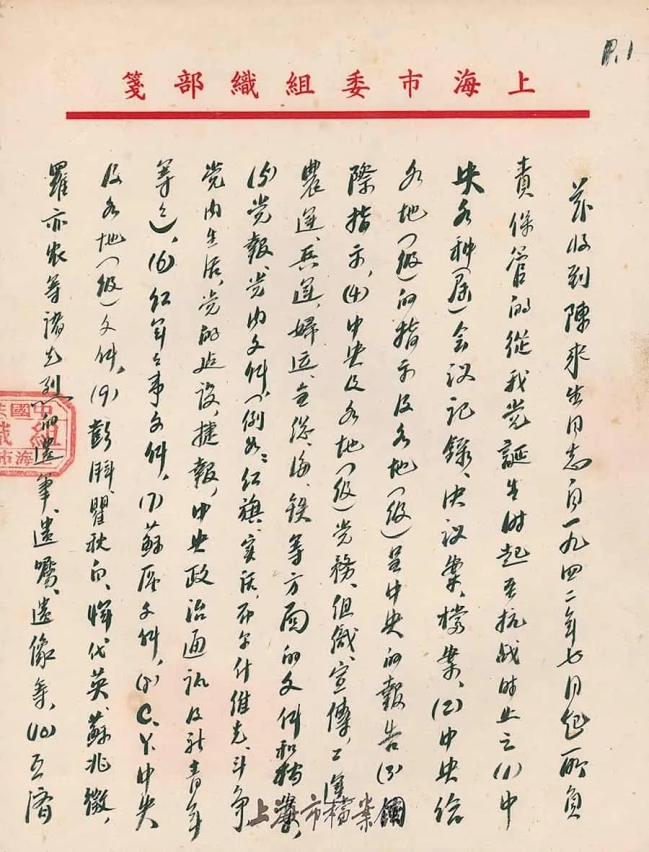 P.1
上海市委組織部箋
茲收到陳來生同志自一九四二年七月起所負
責保管的從我党誕生时起至抗战时止之(1)中
央各种(届)会议记録、决议案、檔案、(2)中央给
各地(级)的指示及各地(级)呈中央的報告(3)
際指示,(4)中央及各地(级)党務、组織、宣傳、工運
農運、兵運、婦运、全总、海、铁等方面的文件和档案,
(5)党報、党内文件(例如:红旗、实话、布尔什維克、斗争
党内生活、党的建设、捷報,中央政治通讯及新青年
等之),(6)红軍軍事文件,(7)蘇區文件,(8)C.Y.中央
及各地(级)文件,(9)彭湃、瞿秋白、惲代英、蘇兆徵、
羅亦农等诸先烈的遺筆、遺嘱、遺像等,(10)互濟
中國共
組織
上海市
上海市檔案館